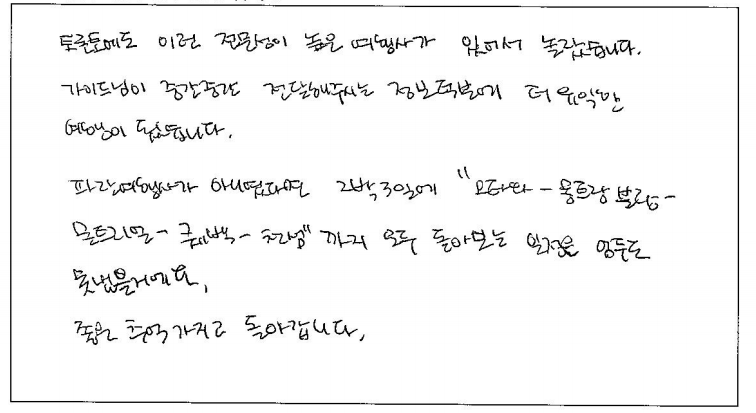 토론토에도 이런 전문성이 높은 여행사가 있어서 놀랐습니다.
가이드님이 중간중간 전달해주시는 정보덕분에 더 유익한
여행이 됐습니다.
파란여행사가 아니였다면 2박3일에 "오타와 - 몽트랑블랑 -
몬트리얼 - 퀘백 - 천섬" 까지 모두 돌아보는 일정을 엄두도
못냈을거에요.
좋은 추억가지고 돌아갑니다.